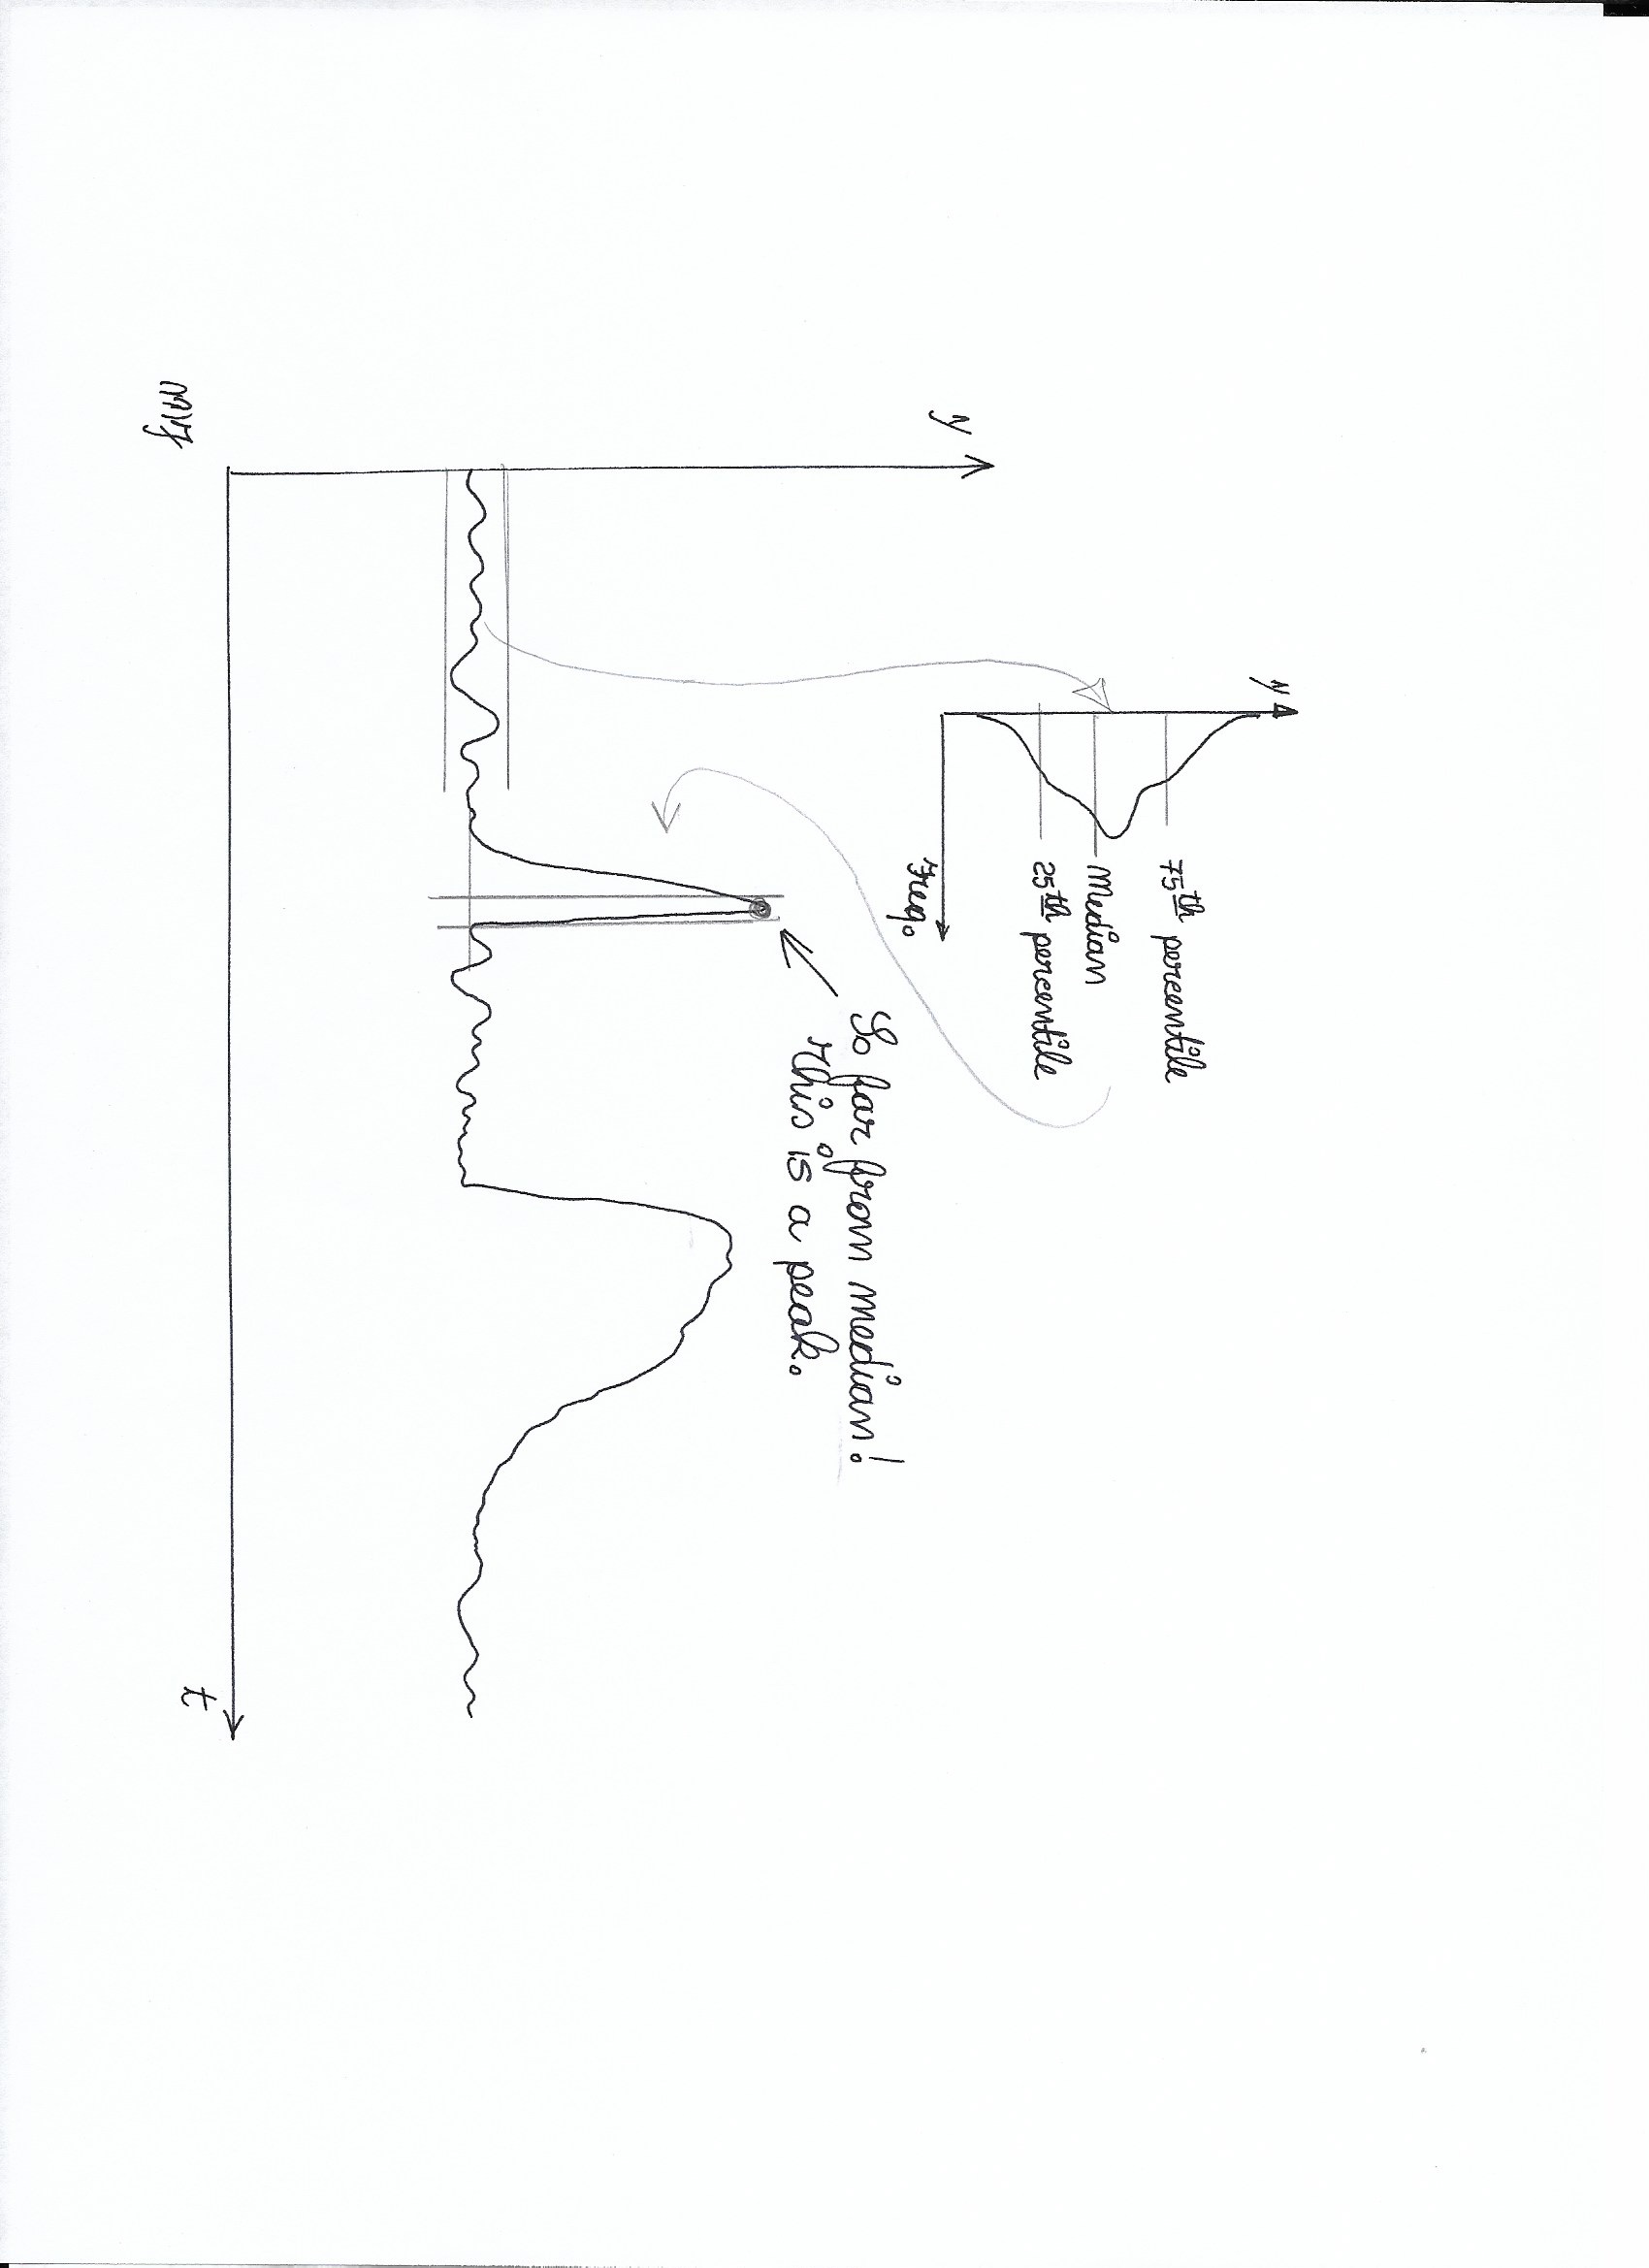 y
75th percentile
Median
25th percentile
Freq.
y
So far from median!
This is a peak.
t